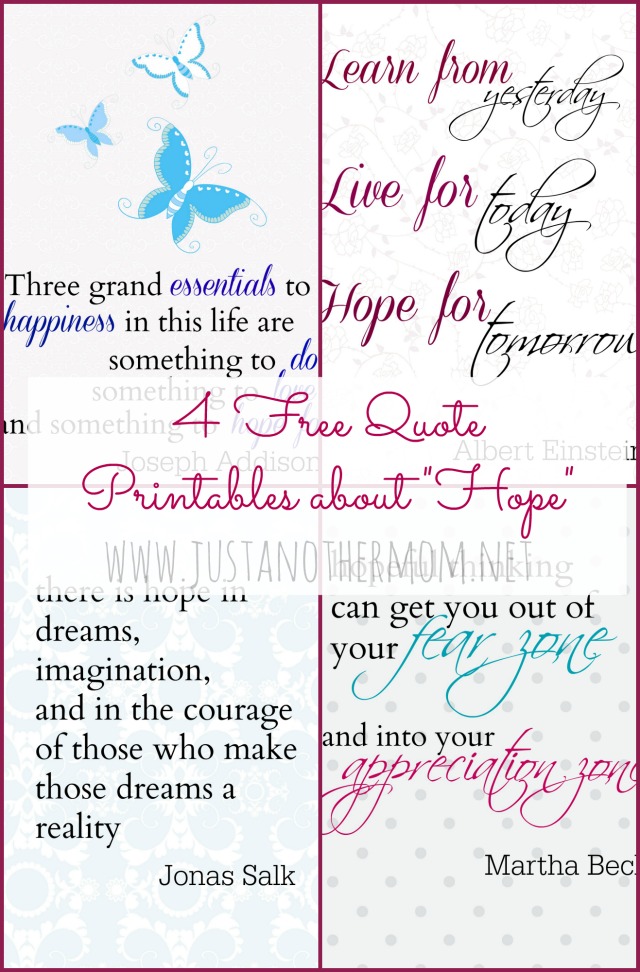 Three grand essentials to
happiness in this life are
something to do
something to love
and something to hope for
Joseph Addison
Learn from
yesterday
Live for
today
Hope for
tomorrow
Albert Einstein
4 Free Quote
Printables about "Hope"
www.justanothermom.net
there is hope in
dreams,
imagination,
and in the courage
of those who make
those dreams a
reality
Jonas Salk
hopeful thinking
can get you out of
your fear zone
and into your
appreciation zone
Martha Bec